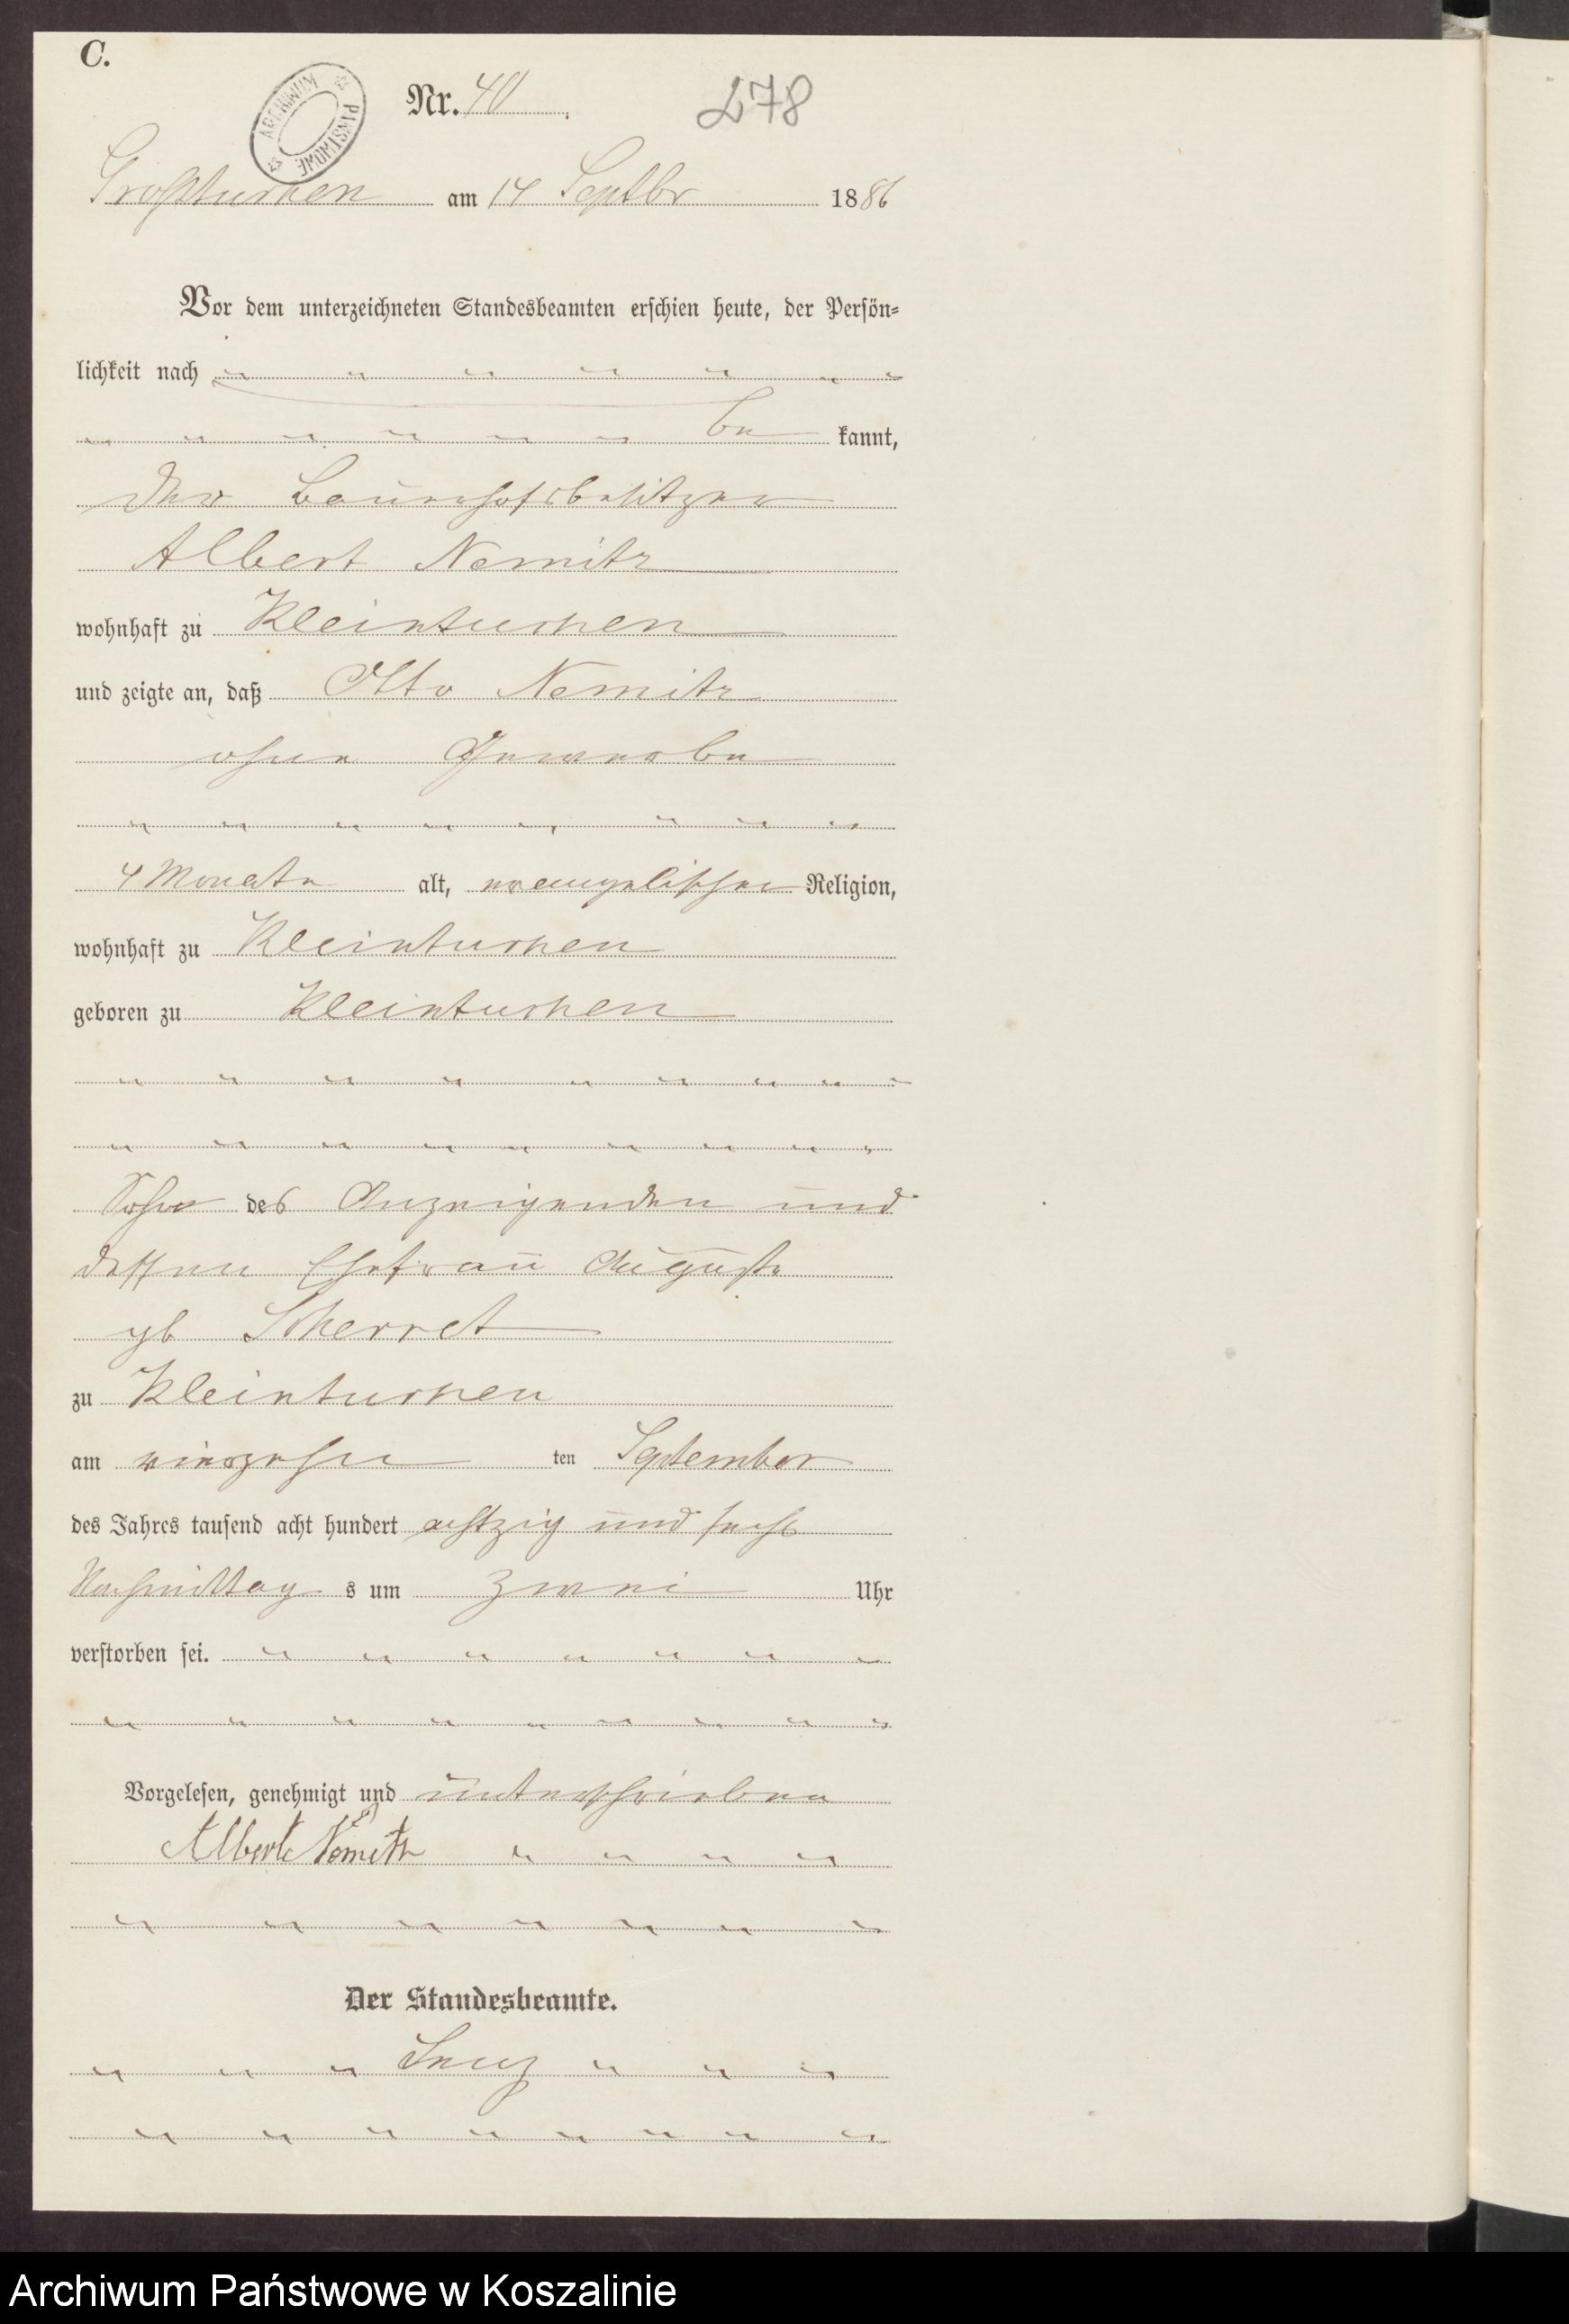 C.
ARCHIWUM PAŃSTWOWE
Nr. 40
278
Großtuchen am 14 Septbr 1886
Vor dem unterzeichneten Standesbeamten erschien heute, der Persön-
lichkeit nach
be kannt,
der Bauerhofsbesitzer
Albert Nemitz
wohnhaft zu Kleintuchen
und zeigte an, daß Otto Nemitz
ohne Gewerbe
4 Monate alt, evangelischer Religion,
wohnhaft zu Kleintuchen
geboren zu Kleintuchen
Sohn des Anzeigenden und
dessen Ehefrau Auguste
gb
zu Kleintuchen
am vierzehn ten September
des Jahres tausend acht hundert achtzig und sechs
Nachmittag s um zwei Uhr
verstorben sei.
Vorgelesen, genehmigt und unterschrieben
Albert Nemitz
Der Standesbeamte.
Archiwum Państwowe w Koszalinie